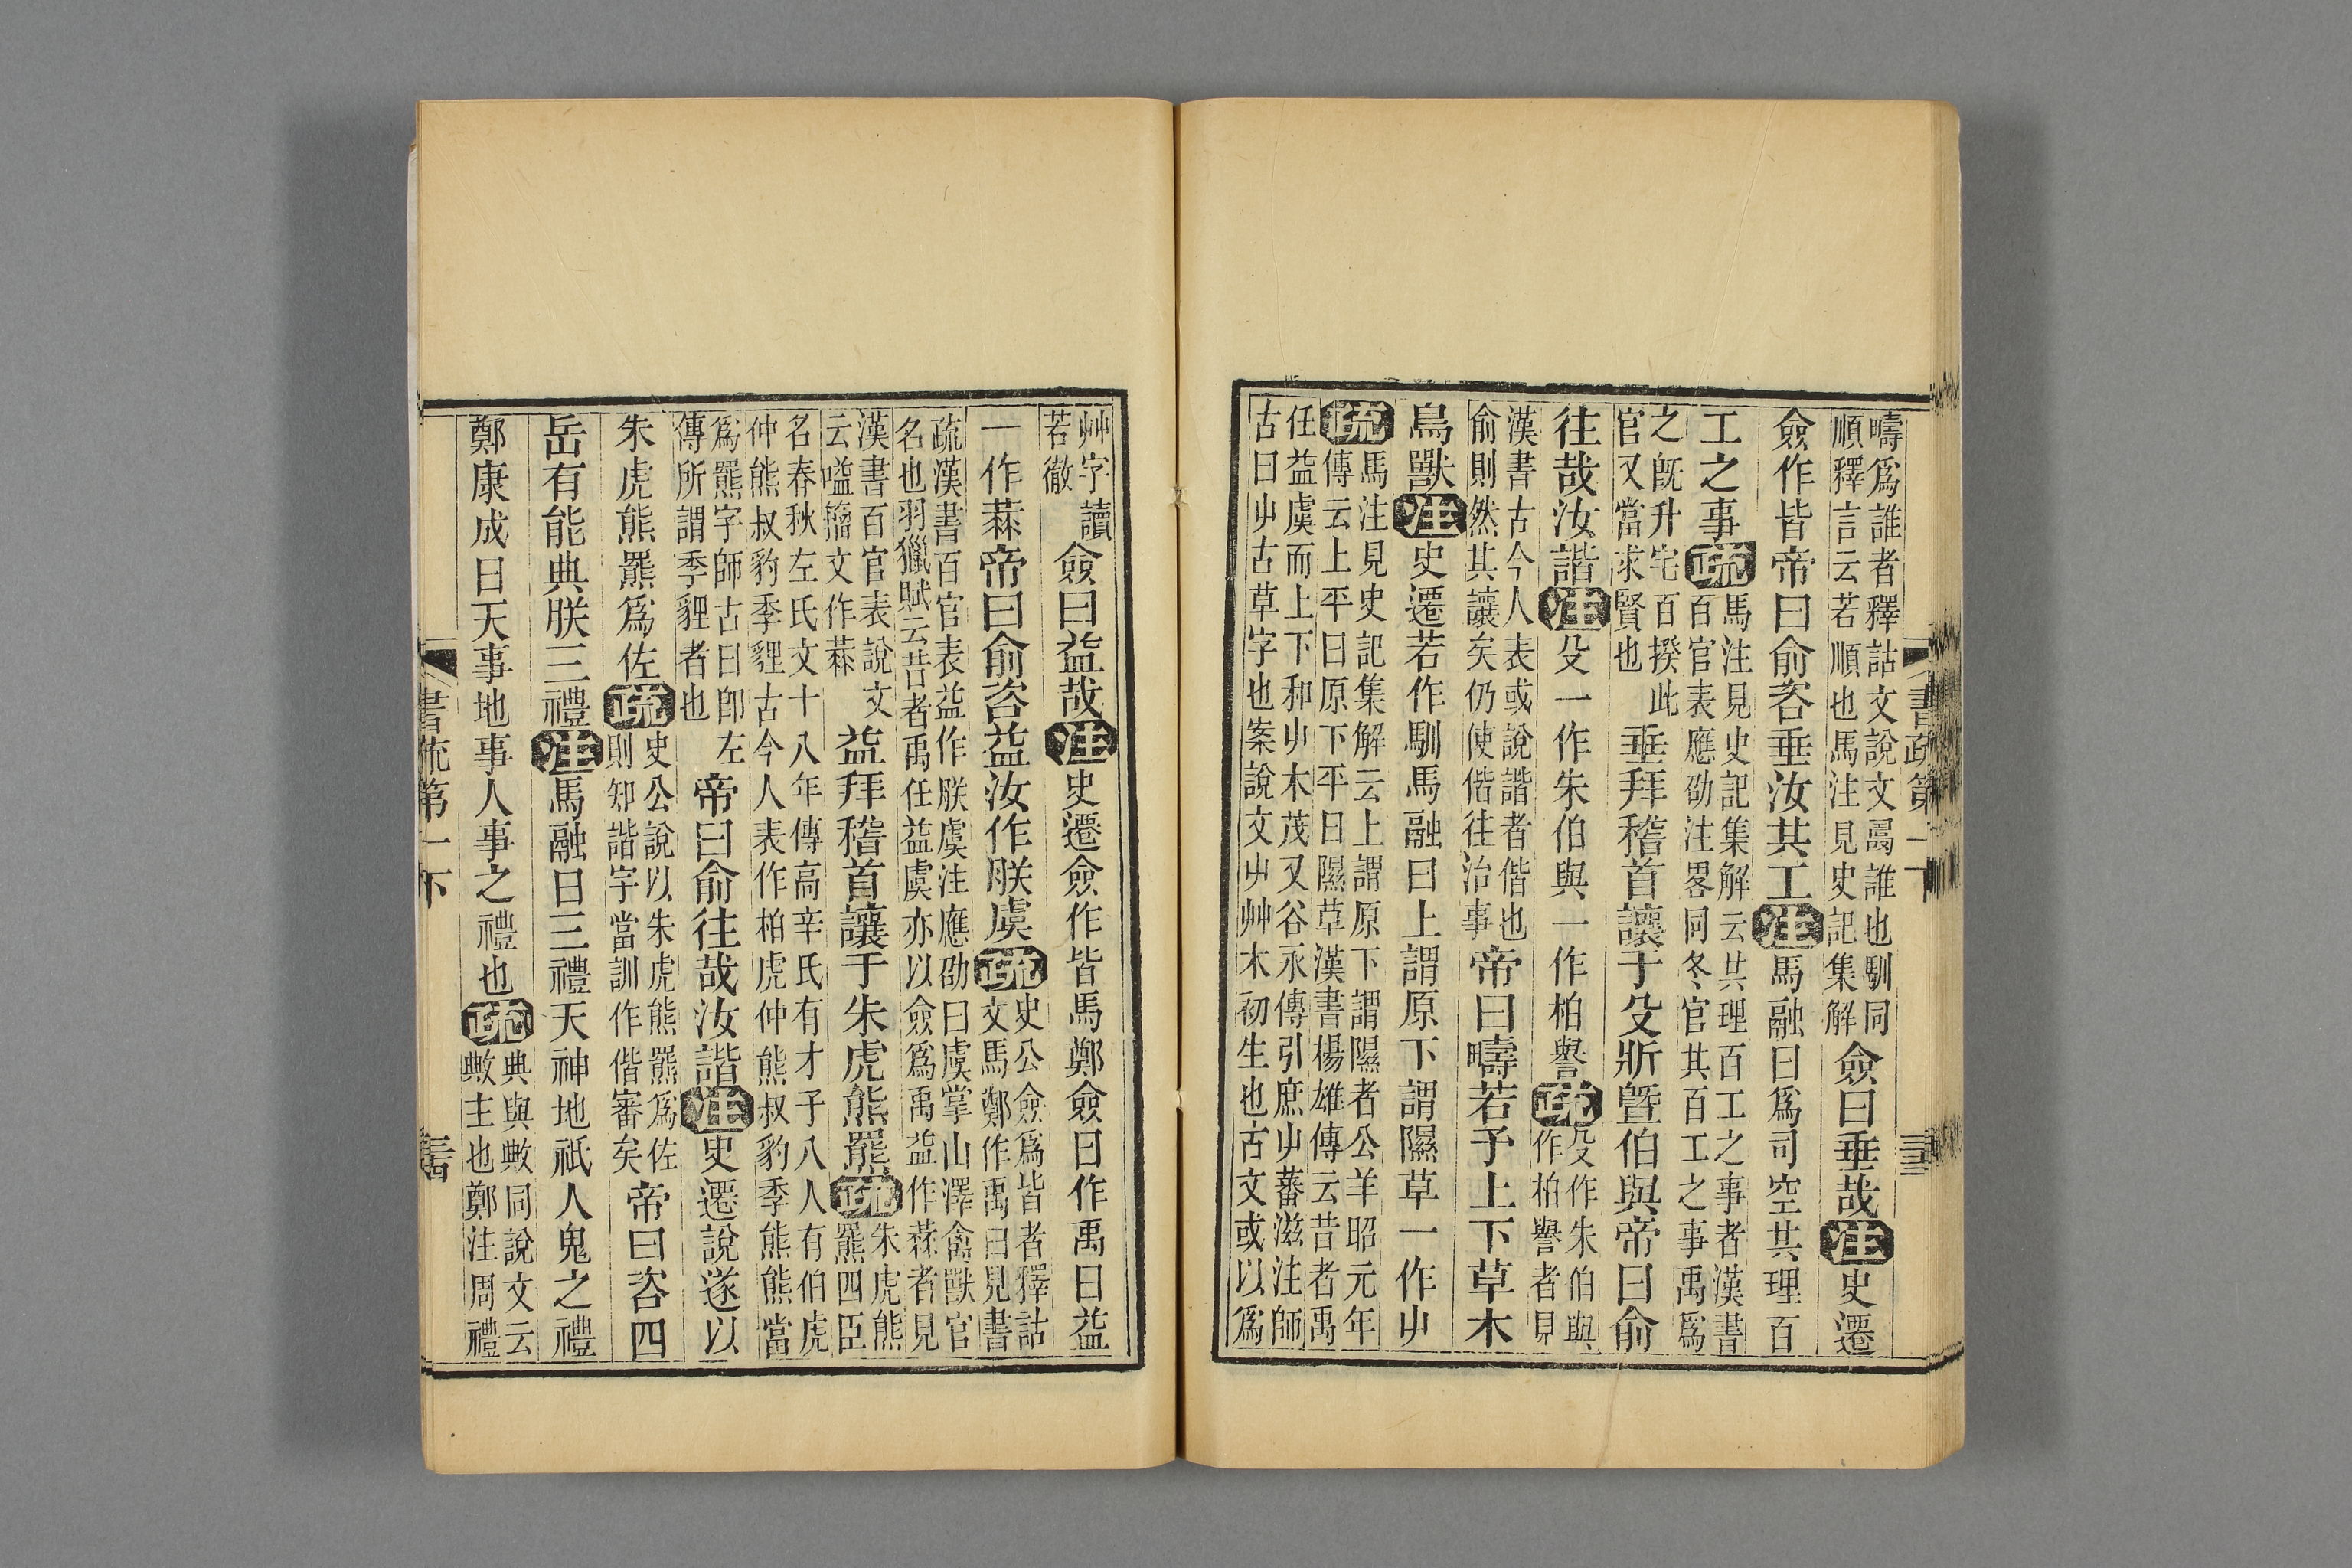 疇爲誰者釋詁文說文𠷎誰也馴同
順釋言云若順也馬注見史記集解
僉曰垂哉注史遷
僉作皆帝曰俞咨垂汝共工注馬融曰爲司空共理百
工之事疏
馬注見史記集解云共理百工之事者漢書
百官表應劭注畧同冬官其百工之事禹爲
之既升宅百揆此
官又當求賢也
垂拜稽首讓于殳斨曁伯與帝曰俞
往哉汝諧注殳一作朱伯與一作柏譽疏
殳作朱伯與
作柏譽者見
漢書古今人表或說諧者偕也
俞則然其讓矣仍使偕往治事
帝曰疇若予上下草木
鳥獸注史遷若作馴馬融曰上謂原下謂隰草一作屮
疏
馬注見史記集解云上謂原下謂隰者公羊昭元年
傳云上平曰原下平曰隰草漢書楊雄傳云昔者禹
任益虞而上下和屮木茂又谷永傳引庶屮蕃滋注師
古曰屮古草字也案說文屮艸木初生也古文或以爲
書疏第一下
三三
艸字讀
若徹
僉曰益哉注史遷僉作皆馬鄭僉曰作禹曰益
一作𦳊帝曰俞咨益汝作朕虞疏
史公僉爲皆者釋詁
文馬鄭作禹曰見書
疏漢書百官表益作朕虞注應劭曰虞掌山澤禽獸官
名也羽獵賦云昔者禹任益虞亦以僉爲禹益作𦳊者見
漢書百官表說文
云嗌籒文作𦳊
益拜稽首讓于朱虎熊羆疏
朱虎熊
羆四臣
名春秋左氏文十八年傳高辛氏有才子八人有伯虎
仲熊叔豹季貍古今人表作柏虎仲熊叔豹季熊熊當
爲羆字師古曰卽左
傳所謂季貍者也
帝曰俞往哉汝諧注史遷說遂以
朱虎熊羆爲佐疏
史公說以朱虎熊羆爲佐
則知諧字當訓作偕審矣
帝曰咨四
岳有能典朕三禮注馬融曰三禮天神地祇人鬼之禮
鄭康成曰天事地事人事之禮也疏
典與敟同說文云
敟主也鄭注周禮
書疏第一下
三四